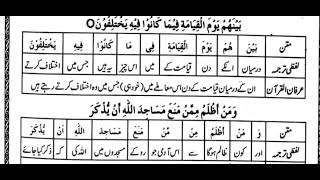 بَيْنَهُمْ يَوْمَ الْقِيَامَةِ فِيمَا كَانُوا فِيهِ يَخْتَلِفُونَ
متن بَيْنَ هُمْ يَوْمَ الْقِيَامَةِ فِي مَا كَانُوا فِيهِ يَخْتَلِفُونَ
لفظی ترجمہ درمیان انکے دن قیامت کے میں اس چیز یہ ہیں جس میں اختلاف کرتے
عرفان القرآن درمیان قیامت کے دن اس معاملے میں (خود ہی) جس میں وہ اختلاف کرتے رہتے ہیں
وَمَنْ أَظْلَمُ مِمَّنْ مَنَعَ مَسَاجِدَ اللَّهِ أَنْ يُذْكَرَ
متن وَ مَنْ أَظْلَمُ مِنْ مَنْ مَنَعَ مَسَاجِدَ اللَّهِ أَنْ يُذْكَرَ
لفظی ترجمہ اور کون ظالم ہوگا سے اس آدمی جو روکے مسجدوں میں اللہ کی کہ ذکر کیا جائے